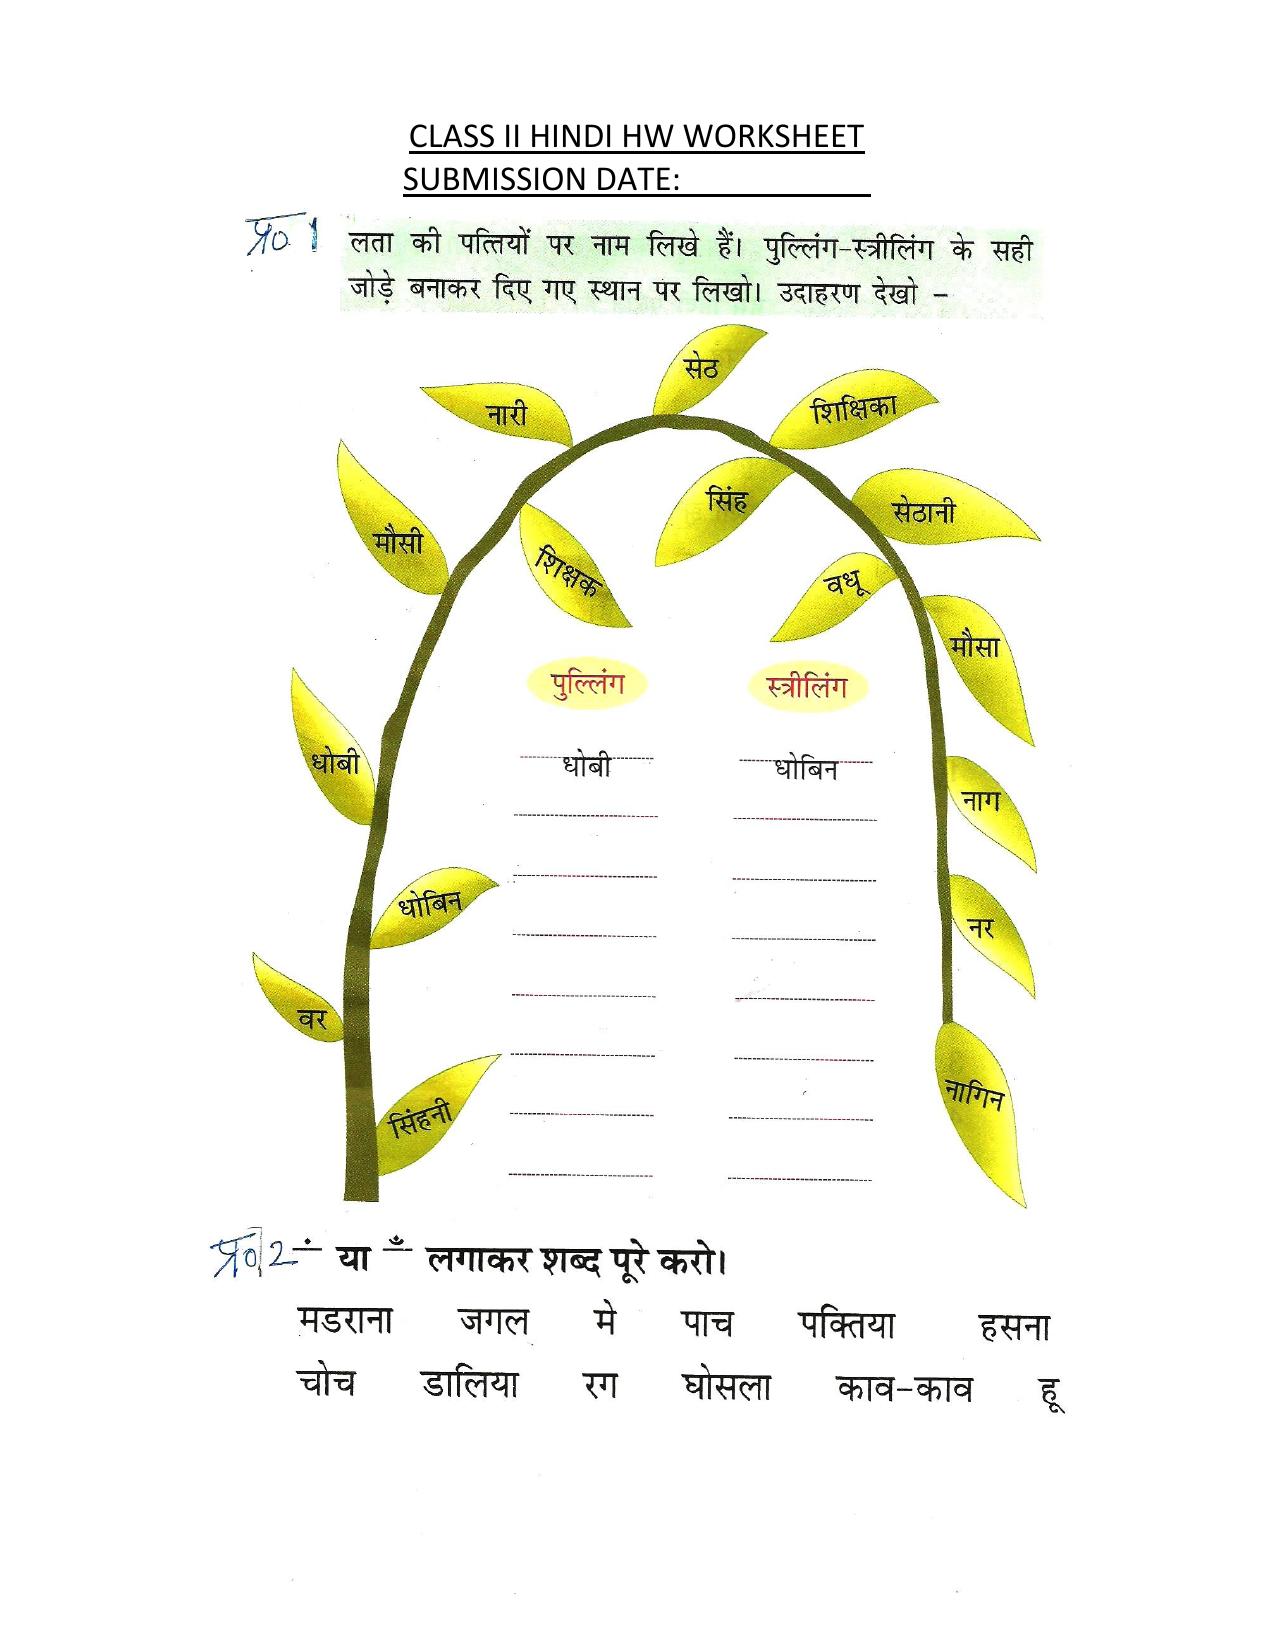 CLASS II HINDI HW WORKSHEET
SUBMISSION DATE:
प्र०1 लता की पत्तियों पर नाम लिखे हैं। पुल्लिंग-स्त्रीलिंग के सही
जोड़े बनाकर दिए गए स्थान पर लिखो। उदाहरण देखो –
सेठ
नारी
शिक्षिका
सिंह
सेठानी
मौसी
शिक्षक
वधू
मौसा
पुल्लिंग स्त्रीलिंग
धोबी
धोबी धोबिन
नाग
धोबिन
नर
वर
सिंहनी
नागिन
प्र०2 ं या ँ लगाकर शब्द पूरे करो।
मडराना जगल मे पाच पक्तिया हसना
चोच डालिया रग घोसला काव-काव हू